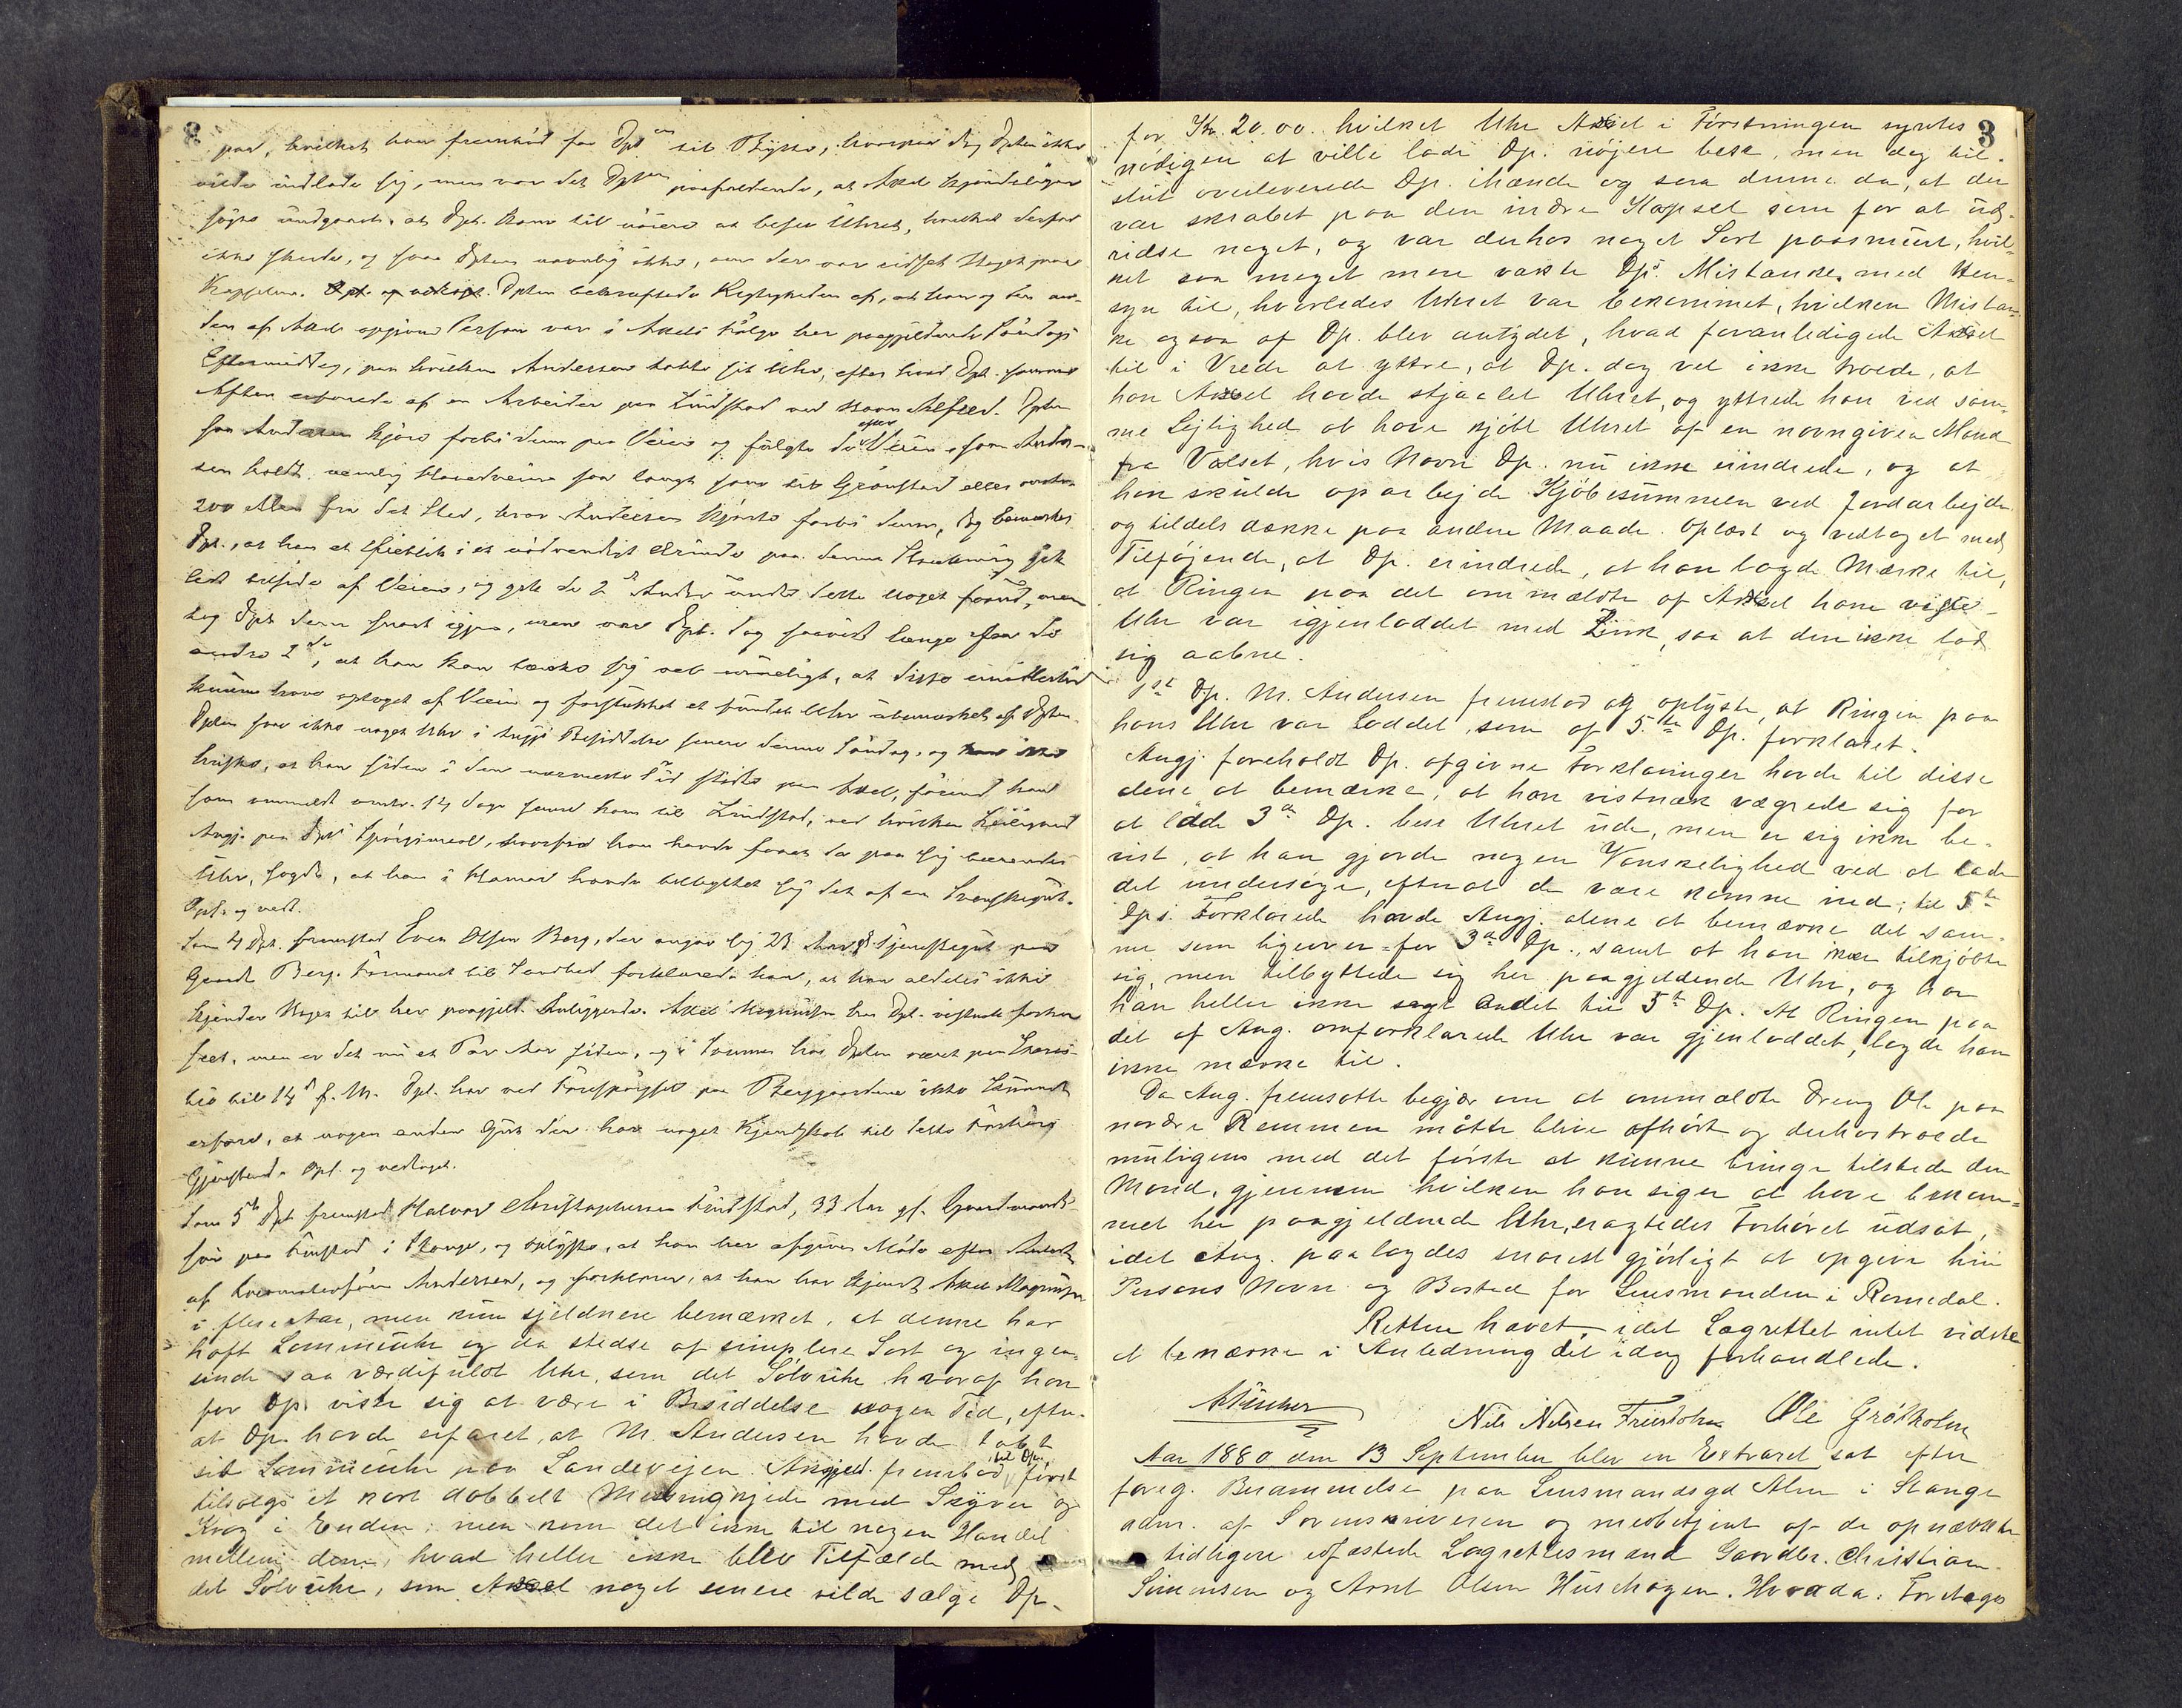 paa, hvilket han frembød for Dpt. til Bytte, hvorpaa dog Dpten ikke
vilde indlade sig, men var det Dpten paafaldende, at Axel kjendeligen
søgte undgaaet, at Dpt. kom til nøiere at besee Uhret, hvilket derfor
ikke skede, og saa Dpten navnlig ikke, om der var ridset Noget paa
Kapselen. Dpten bekræftede Rigtigheden af, at han og den an-
den af Axel opgivne Person var i Axels Følge her paagjeldende Søndags
Eftermiddag, paa hvilken Andersen tabte sit Uhr, efter hvad Dpt. samme
Aften erfarede af en Arbeider paa Lindstad ved Navn Alfred. Dpten
saa Andersen kjøre forbi dem paa Veien og fulgte de efter Veien, som Ander-
sen holdt, nemlig Hovedveien saa langt som til Grønstad eller omtr.
200 Alen fra det Sted, hvor Andersen kjørte forbi dem, dog bemærker
Dpt., at han et Øieblik i et nødvendigt Ærinde paa denne Strækning gik
lidt tilside af Veien, og gik de 2de Andre under dette noget forud, men
tog Dpt. dem snart igjen, men var Dpt. dog saavidt længe fra de
andre 2de, at han kan tænke sig vel muligt, at disse imidlertid
kunne have optaget af Veien og forstukket et fundet Uhr ubemærket af Dpten.
Dpten saa ikke noget Uhr i Angjs Besiddelse senere denne Søndag, og
huske, at han siden i den nærmeste Tid stødte paa Axel, førend han
som anmeldt omtr. 14 Dage senere kom til Lindstad, ved hvilken Leilighed
Angj. paa Dpts Spørgsmaal, hvorfra han havde faaet det paa sig bærende
Uhr, sagde, at han i Hamar havde tilbyttet sig det af en Svenskegut.
Opl. og vedt.
Som 4 Dpt. fremstod Even Olsen Berg, der angav sig 23 Aar g. Tjenestegut paa
Gaard Berg. Formanet til Sandhed forklarede han, at han aldeles ikke
kjender Noget til her paagjeld. Anliggende. Axel Magnussen har Dpt. vistnok forhen
seet, men er det nu et Par Aar siden, og i Sommer har Dpten været paa
til 14de f. M. Dpt. har ved Forespørgsel paa Berggaardene ikke kunnet
erfare, at nogen anden Gut der har noget Kjendskab til dette Forhørs
Gjenstand. Opl. og vedtaget.
Som 5te Dpt fremstod Halvor Christophersen Lindstad, 33 Aar gl. Gaardmands-
søn paa Lindstad i Stange, og oplyste, at han her afgiver Møde efter
af Andersen, og forklarer, at han har kjendt Axel Magnussen
i flere Aar, men kun sjeldnere bemærket, at denne har
haft Lommeuhr og da stedse af simplere Sort og ingen-
sinde saa værdifuldt Uhr, som det Sølvuhr hvoraf han
for Dp. viste sig at være i Besiddelse nogen Tid, efter-
at Dp. havde erfaret, at M. Andersen havde tabt
sit Lommeuhr paa Landevejen. Angjeld. frembød til Dp. først
tilsalgs et kort dobbelt Messingkjede med Skyver og
Krog i Enden; men kom det ikke til nogen Handel
mellem dem, hvad heller ikke blev Tilfældet med
det Sølvuhr, som Axsel noget senere vilde sælge Dp.
3
for Kr. 20.00. hvilket Uhr Axsel i Førstningen syntes
nødigen at ville lade Dp. nøjere bese, men dog til-
slut overleverede Dp. ihænde og saa denne da, at der
var skrabet paa den indre Kapsel som for at ud-
ridse noget, og var derhos noget Sort paasmurt, hvil-
ket saa meget mere vakte Dps. Mistanke med Hen-
syn til, hvorledes Uhret var bekommet, hvilken Mistan-
ke ogsaa af Dp. blev antydet, hvad foranledigede Axsel
til i Vrede at yttre, at Dp. dog vel ikke troede, at
han Axsel havde stjaalet Uhret, og yttrede han ved sam-
me Lejlighed at have kjøbt Uhret af en navngiven Mand
fra Valset, hvis Navn Dp. nu ikke erindrede, og at
han skulde oparbejde Kjøbesummen ved Jordarbejde
og tildels dække paa anden Maade. Oplæst og vedtaget med
Tilføjende, at Dp. erindrede, at han lagde Mærke til,
at Ringen paa det ommældte af Axsel ham viste
Uhr var igjenloddet med Zink, saa at den ikke lod
sig aabne.
1ste Dp. M. Andersen fremstod og oplyste, at Ringen paa
hans Uhr var loddet, som af 5te Dp. forklaret.
Angj. foreholdt Dp. afgivne Forklaringer havde til disse
alene at bemærke, at han vistnok vægrede sig for
at lade 3die Dp. bese Uhret ude, men er sig ikke be-
vist, at han gjorde nogen Vanskelighed ved at lade
det undersøge, efterat de vare komne ind; til 5te
Dps. Forklarede havde Angj. alene at bemærke det sam-
me som ligeover for 3die Dp., samt at han ikke tilkjøbte
sig, men tilbyttede sig her paagjeldende Uhr, og har
han heller ikke sagt andet til 5te Dp. At Ringen paa
det af Ang. omforklarede Uhr var gjenloddet, lagde han
ikke mærke til.
Da Ang. fremsatte begjær om at ommældte Dreng Ole paa
nordre Remmen måtte blive afhørt og derhos troede
muligens med det første at kunne bringe tilstede den
Mand, gjennem hvilken han siger at have bekom-
met her paagjeldende Uhr, eragtedes Forhøret udsat,
idet Ang. paalagdes snarest gjørligt at opgive hin
Persons Navn og Bosted for Lensmanden i Romedal.
Retten hævet, idet Lagrettet intet vidste
at bemærke i Anledning det idag forhandlede.
Nils Nilsen Ole Grøtholm
Aar 1880 den 13 September blev en Extraret sat efter
foreg. Berammelse paa Lensmandsgd Alm i Stange
adm. af Sorenskriveren og medbetjent af de opnævnte
tidligere edfæstede Lagrettesmænd Gaardbr. Christian
Simensen og Arnt Olsen Huschagen. Hvorda: Foretages